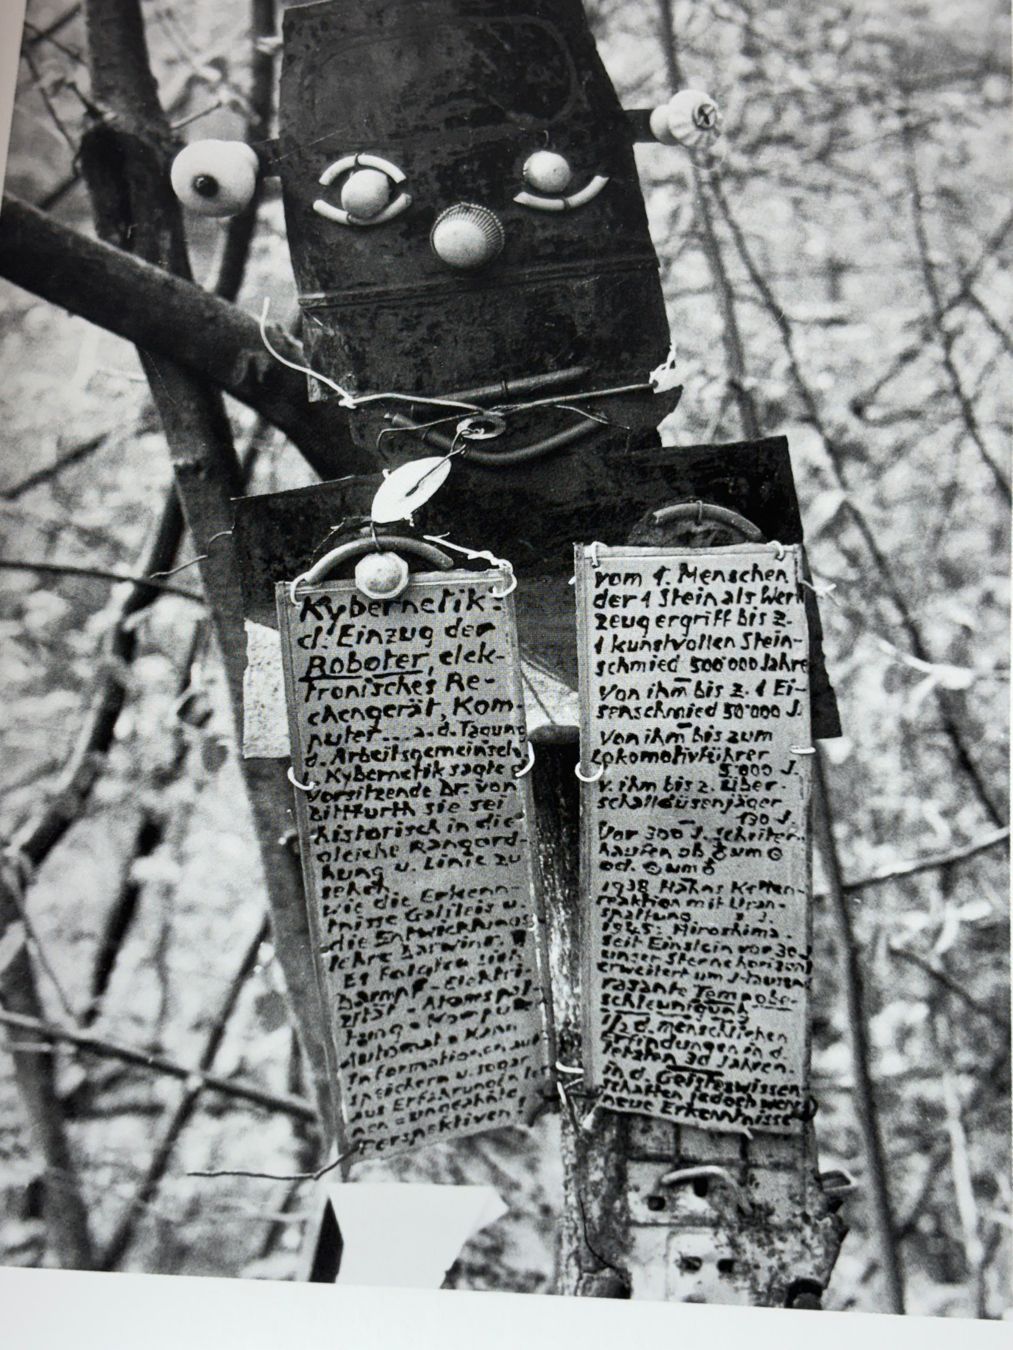 Kybernetik:
d. Einzug der
Roboter, elek-
tronisches Re-
chengerät, Kom-
puter... a.d. Tagung
d. Arbeitsgemeinsch.
f. Kybernetik sagte
Vorsitzende Dr. von
zittfurth sie sei
historisch in die
gleiche Rangord-
nung u. Linie zu
sehen.
wie die Erkennt-
nisse Galileis u.
die Entwicklungs
lehre Darwins.
Es folgten sich
Dampf-Elektri-
zität-Atomspal-
tung-Komputer
Automat-Kann
Informationen auf
speichern u. sogar
aus Erfahrung ler
nen = ungeahnte
Perspektiven!
vom 1. Menschen
der 1 Stein als Werk
zeug ergriff bis z.
1 kunstvollen Stein-
schmied 500'000 Jahre
von ihm bis z. 1 Ei-
senschmied 50'000 J.
von ihm bis zum
Lokomotivführer
5'000 J.
v. ihm bis z. über-
schalldüsenjäger
130 J.
Vor 300 J. Scheiter-
haufen ob ♁ um ☉
od. ☉ um ♁
1938 Hahns Ketten-
reaktion mit Uran-
spaltung
1945: Hiroshima-
seit Einstein vor 30 J
unser Sternehorizont
erweitert um J-tausend
rasante Tempobe-
schleunigung
1/2 d. menschlichen
Erfindungen in d.
letzten 30 Jahren-
in d. Geisteswissen
schaften jedoch wenig
neue Erkenntnisse